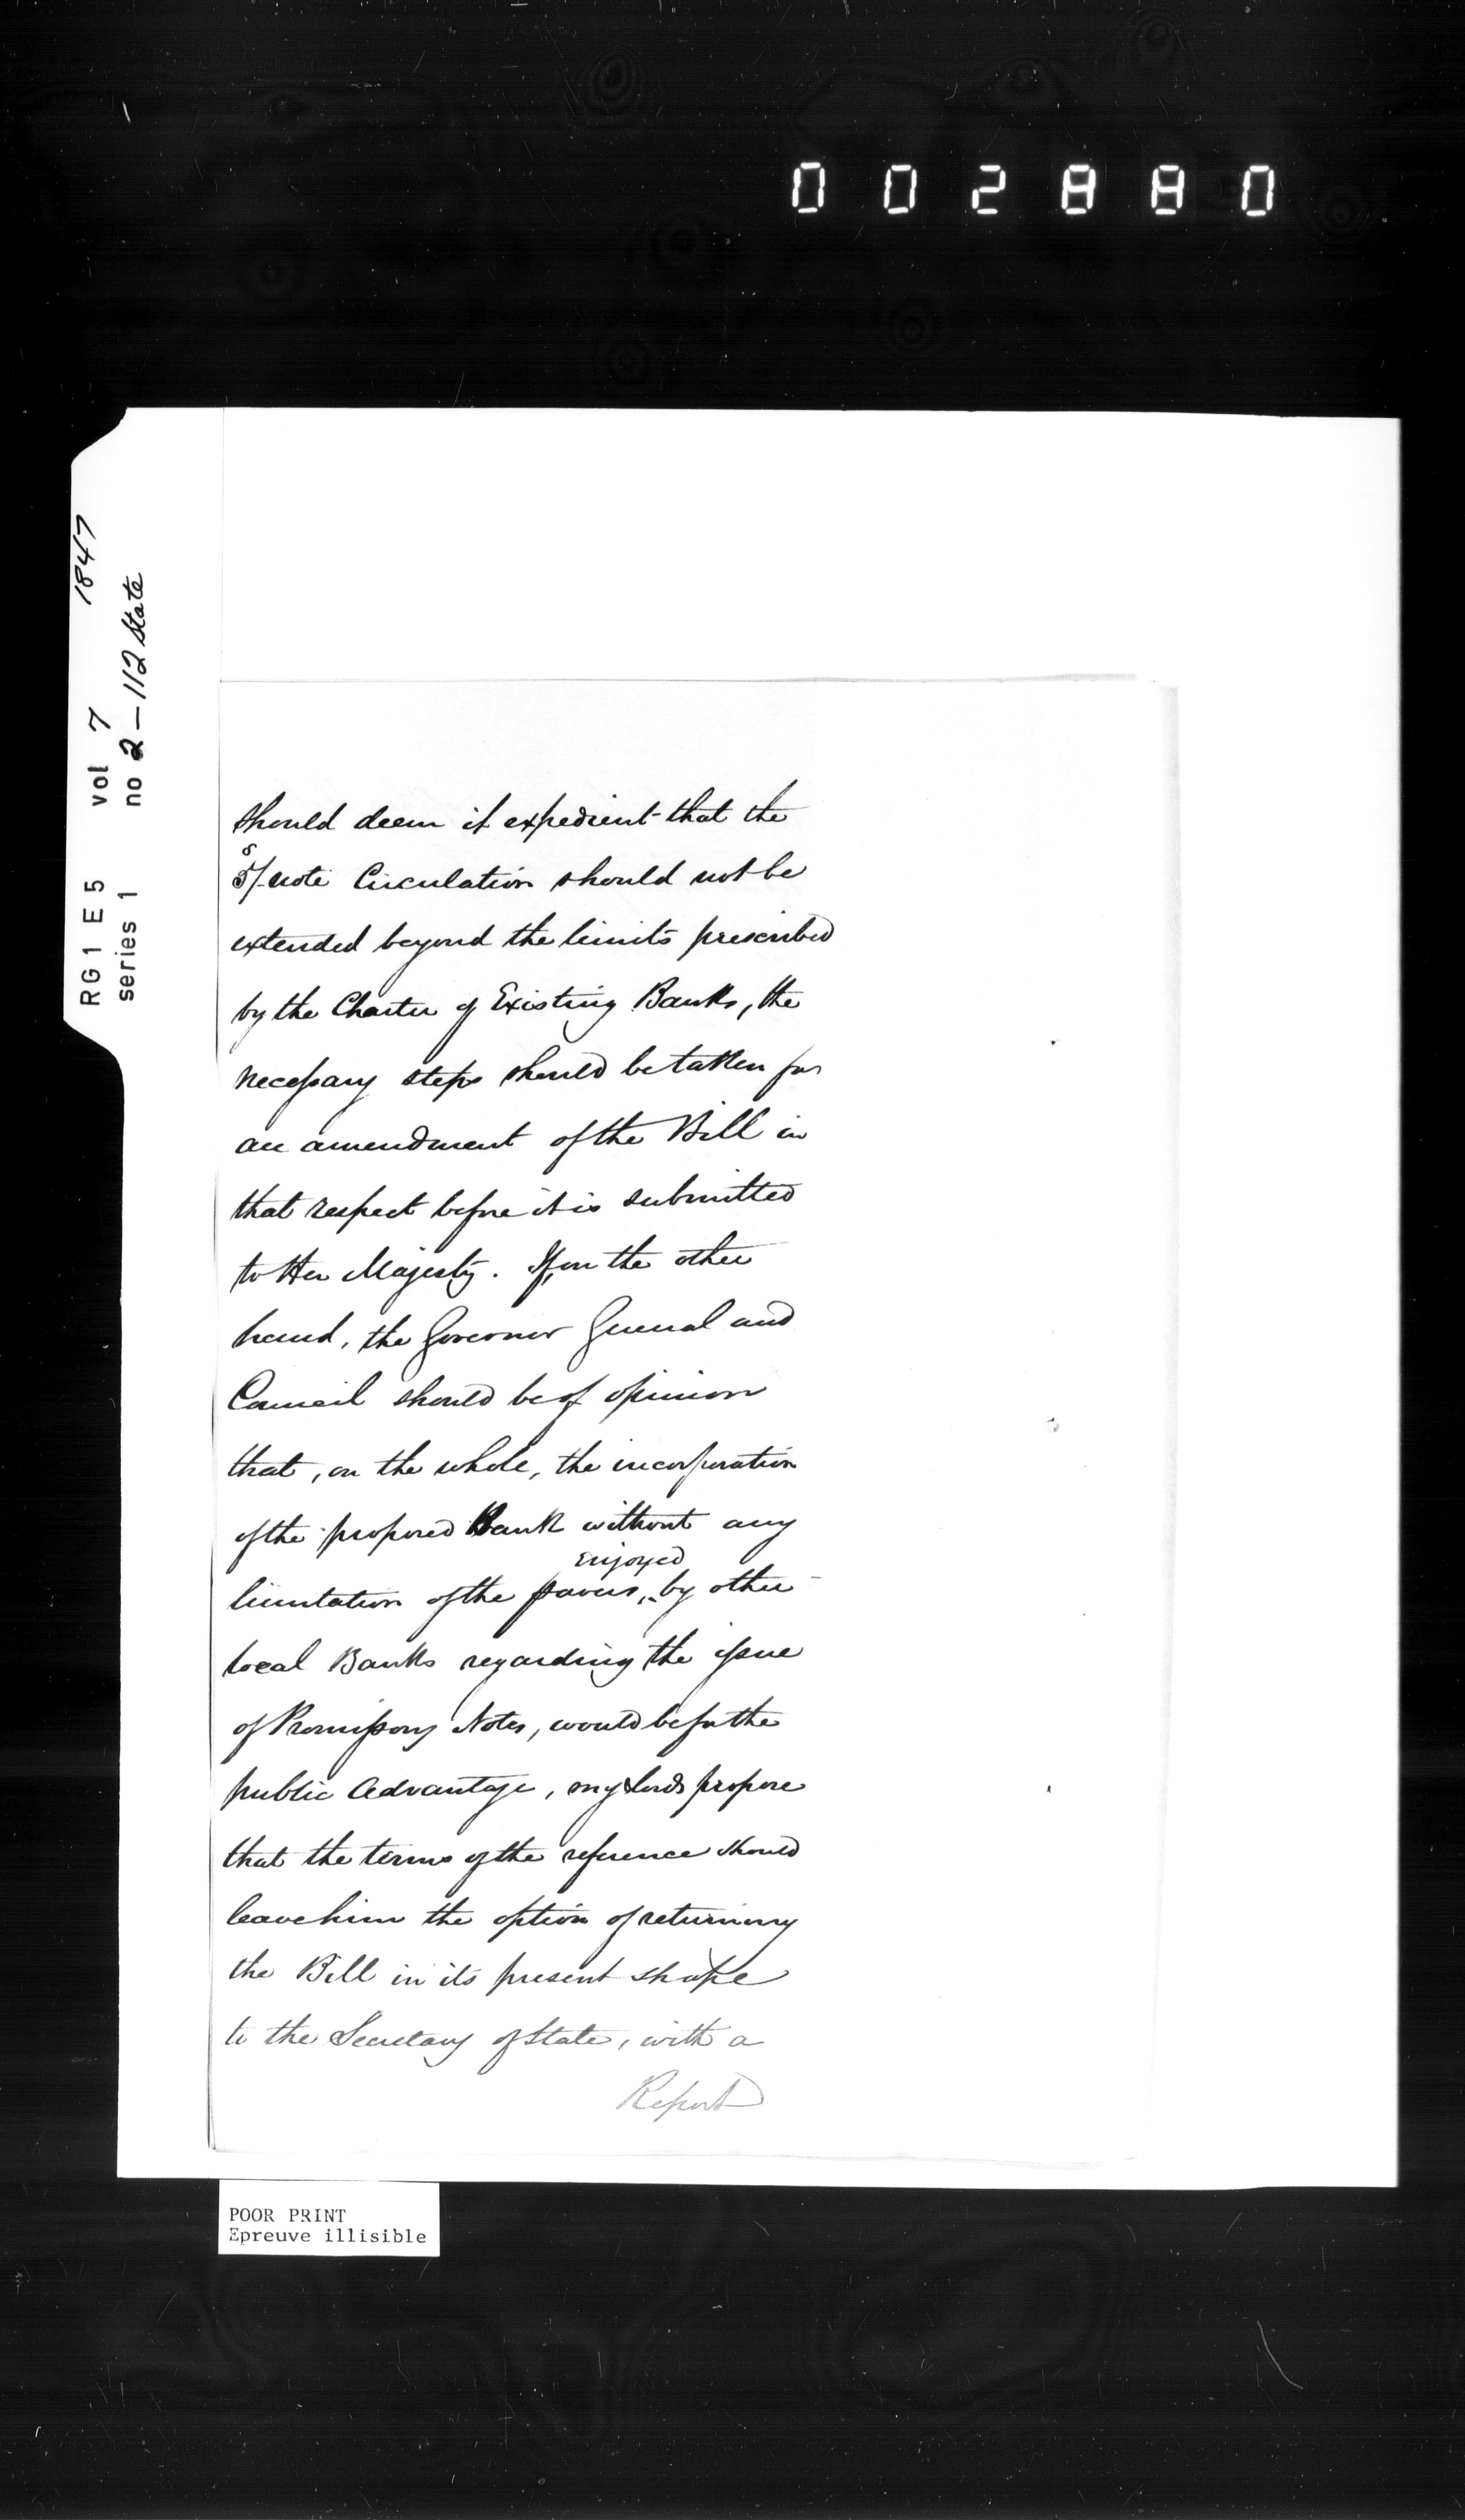 002880
RG1 E5 vol 7 1847
series 1 no 2-112 State
should deem it expedient that the
5/ note Circulation should not be
extended beyond the limits prescribed
by the Charter of Existing Banks, the
necessary steps should be taken for
an amendment of the Bill in
that respect before it is submitted
to Her Majesty. If, on the other
hand, the Governor General and
Council should be of opinion
that, on the whole, the incorporation
of the proposed Bank without any
enjoyed
limitation of the powers, by other
local Banks regarding the issue
of Promissory Notes, would be for the
public Advantage, my Lords propose
that the terms of the reference should
leave him the option of returning
the Bill in its present shape
to the Secretary of State, with a
Report
POOR PRINT
Epreuve illisible